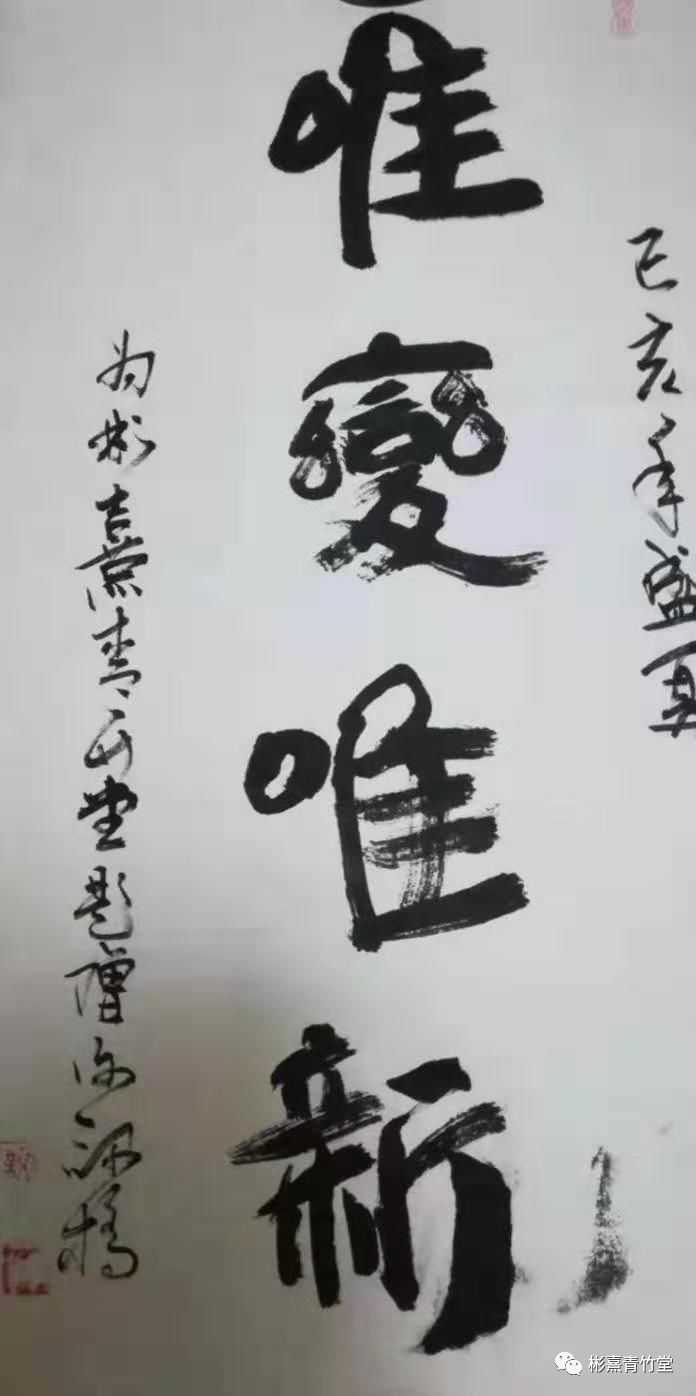 己亥年盛夏
唯變唯新
为彬熹青竹堂题
彬熹青竹堂